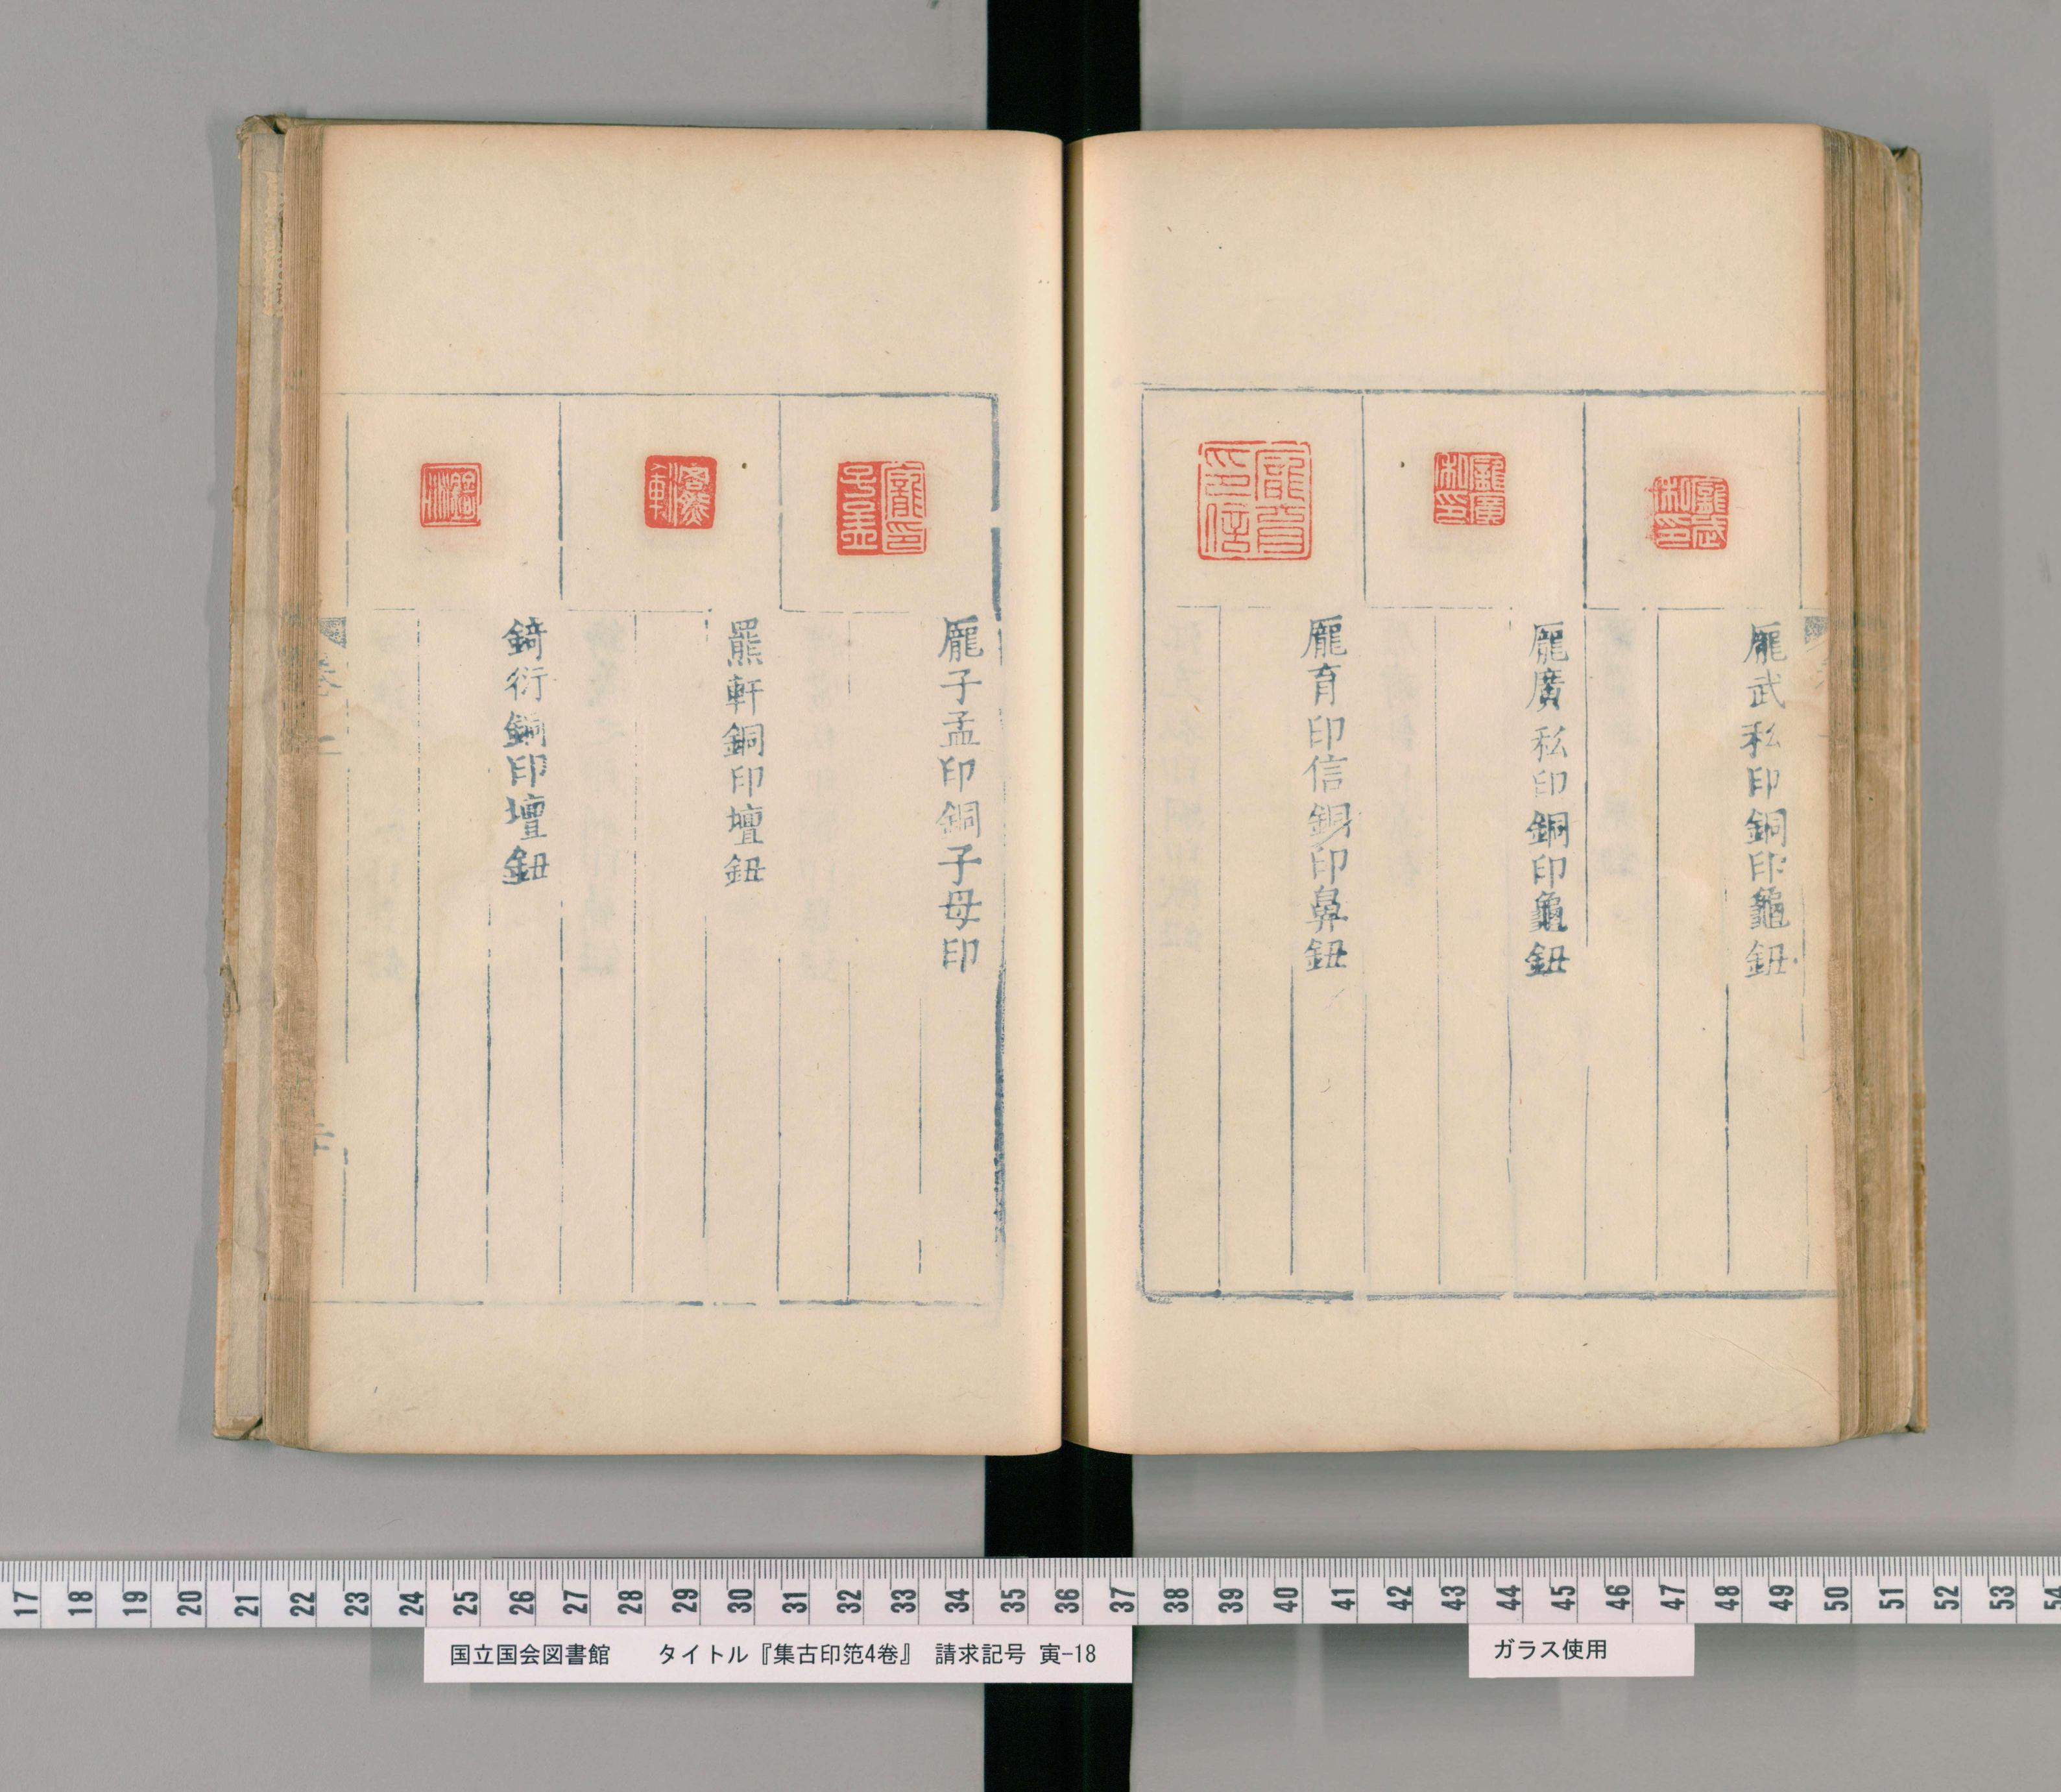 龐武私印銅印龜鈕
龐廣私印銅印龜鈕
龐育印信銅印鼻鈕
龐子孟印銅子母印
羆軒銅印壇鈕
錡衍銅印壇鈕
17 18 19 20 21 22 23 24 25 26 27 28 29 30 31 32 33 34 35 36 37 38 39 40 41 42 43 44 45 46 47 48 49 50 51 52 53 54
国立国会図書館 タイトル『集古印笵4巻』 請求記号 寅-18
ガラス使用